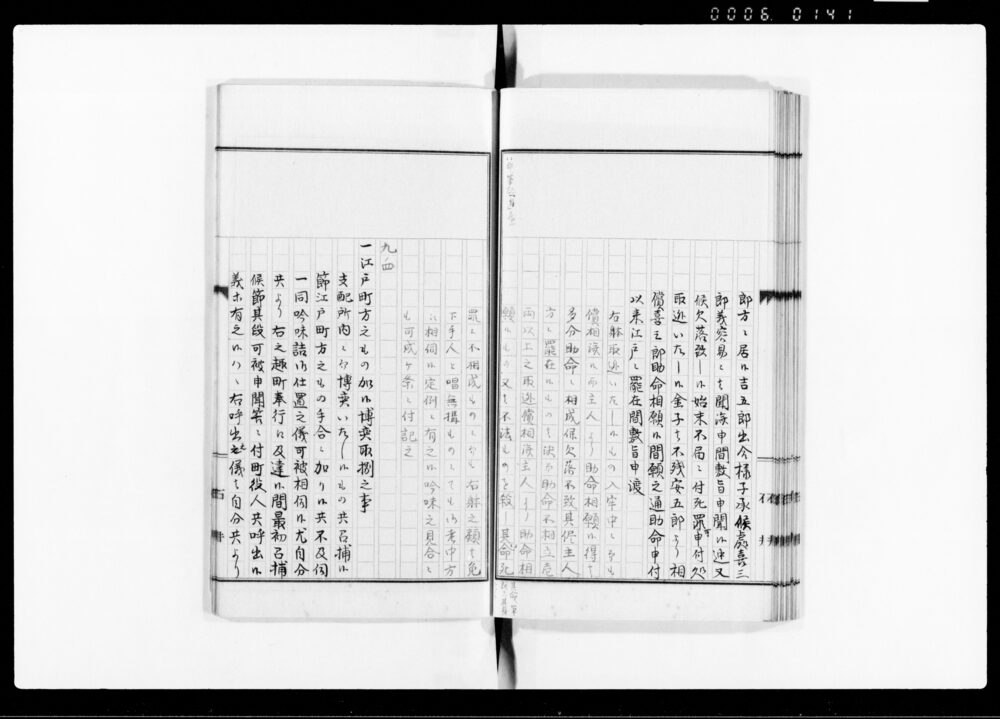 0006. 0141
郎方ニ居候吉五郎出合様子承候處喜三
郎義容易ニも聞済申間敷旨申聞候迚又
候欠落致し候始末不届ニ付死罪可申付処
取逃いたし候金子も不残安五郎より相
償喜三郎助命相願候間願之通助命申付
以来江戸ニ罷在間敷旨申渡
右躰取逃いたし候もの入牢中ニても
償相済候而主人より助命相願候得は
多分助命ニ相成候欠落不致其侭主人
方ニ罷在候もの
両以上之取逃償相済主人より助命相
願候もの又は不法ものを殺し其命死
罪ニ不相成ものとても右躰之願は免
下手人と唱無構ものとても
江相伺候定例ニ有之候吟味之見合ニ
も可成ケ条ニ付記之
九四
一江戸町方之もの加り候博奕取捌之事
支配所内ニ而博奕いたし候もの共召捕候
節江戸町方之もの手合ニ加り候共不及伺
一同吟味詰御仕置之儀可被相伺候尤自分
共より右之趣町奉行江及達候間最初召捕
候節其段可被申聞筈ニ付町役人共呼出候
義等有之候ハヽ右呼出之儀は自分共より